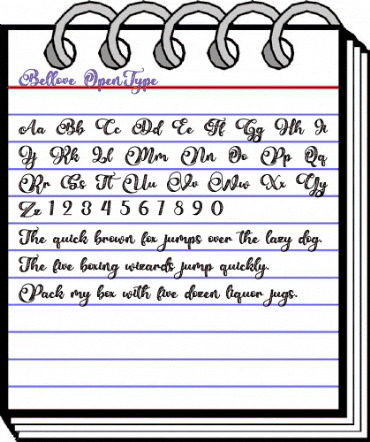 Bellove OpenType
Aa Bb Cc Dd Ee Ff Gg Hh Ii
Jj Kk Ll Mm Nn Oo Pp Qq
Rr Ss Tt Uu Vv Ww Xx Yy
Zz 1 2 3 4 5 6 7 8 9 0
The quick brown fox jumps over the lazy dog.
The five boxing wizards jump quickly.
Pack my box with five dozen liquor jugs.